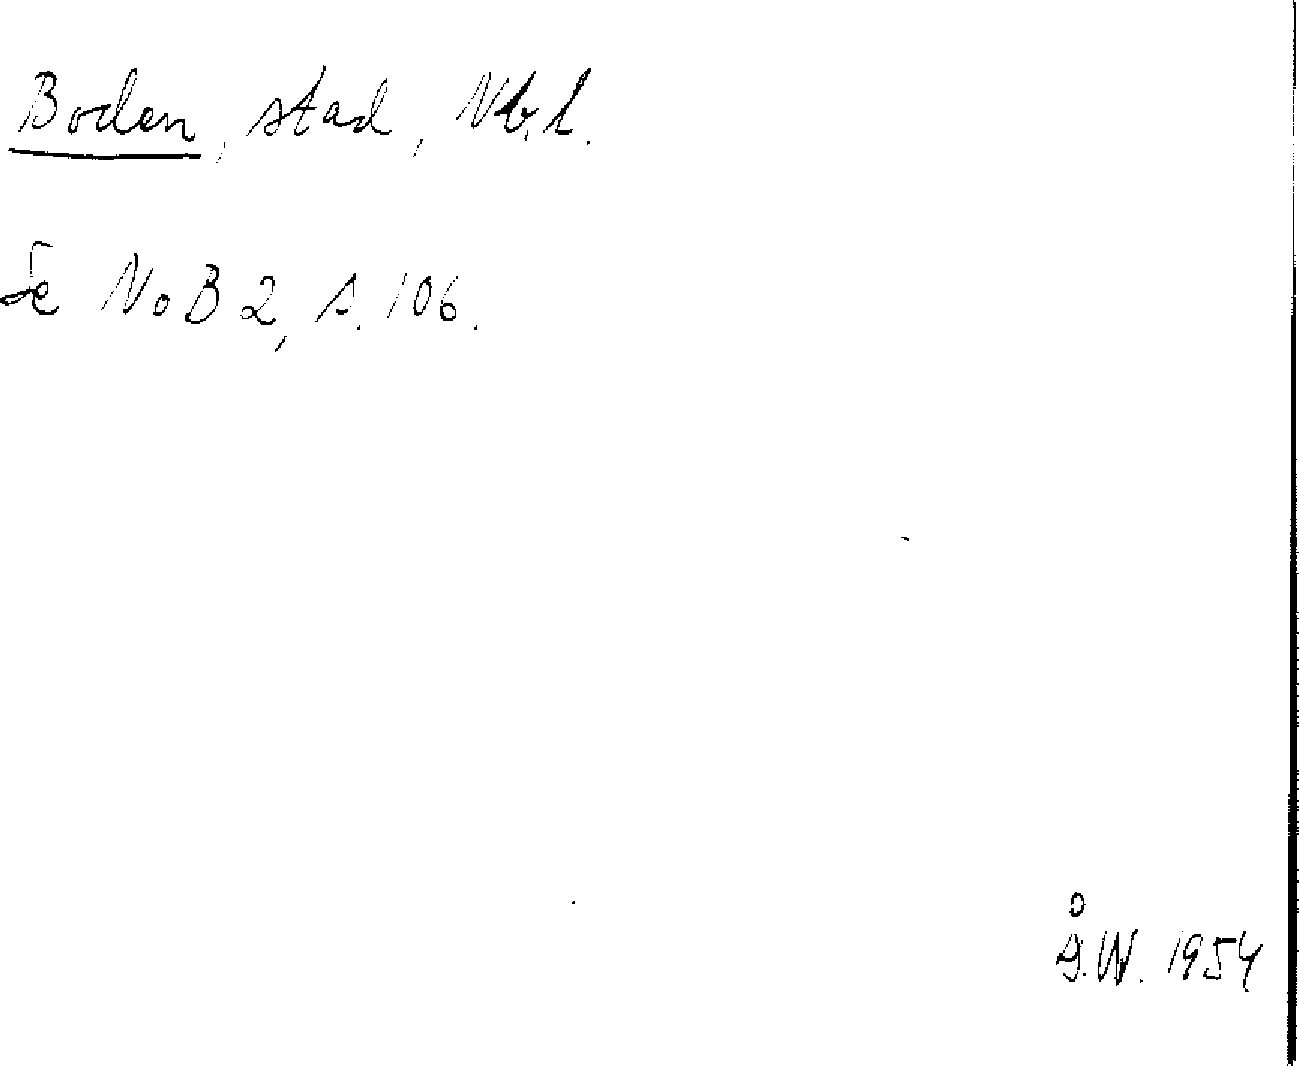 Boden, stad, Nb.l.
Se NoB 2, s. 106.
Å.W. 1954